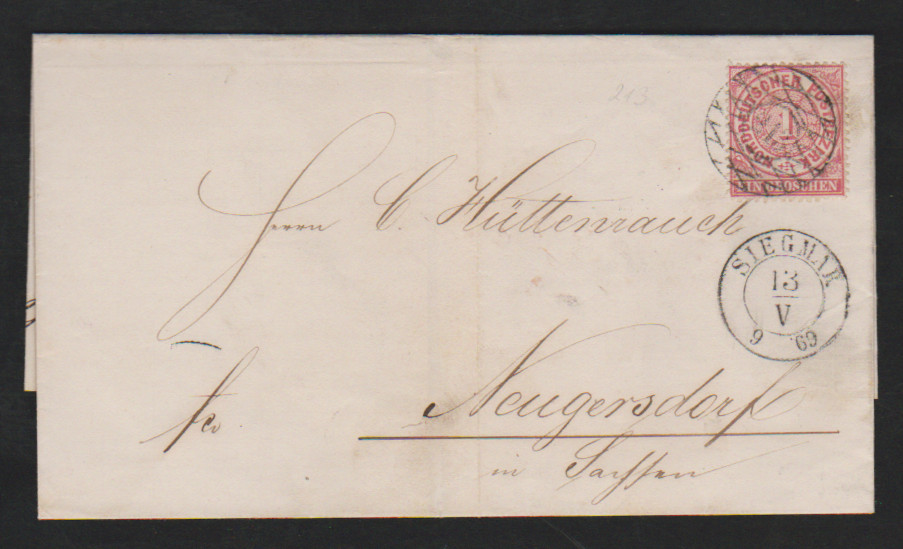 213
NORDDEUTSCHER POSTBEZIRK
1
EIN GROSCHEN
Herrn C. Hüttenrauch
SIEGMAR
13
V
9 69
fco
Neugersdorf
in Sachsen